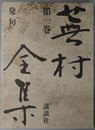 蕪村
全集
第一巻
発句
講談社